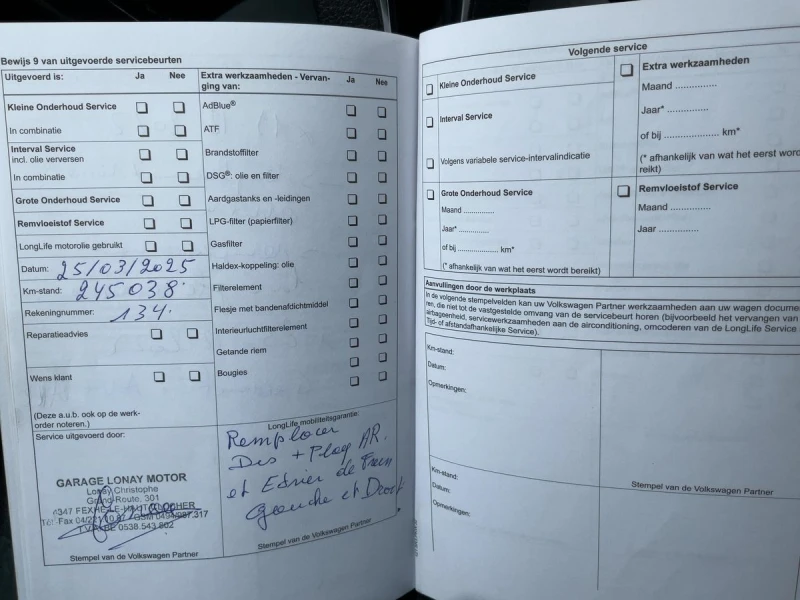 Bewijs 9 van uitgevoerde servicebeurten
Uitgevoerd is: Ja Nee
Kleine Onderhoud Service
In combinatie
Interval Service
incl. olie verversen
In combinatie
Grote Onderhoud Service
Remvloeistof Service
LongLife motorolie gebruikt
Datum: 25/03/2025
Km-stand: 245038.
Rekeningnummer: 134.
Reparatieadvies
Wens klant
(Deze a.u.b. ook op de werk-
order noteren.)
Service uitgevoerd door:
GARAGE LONAY MOTOR
Lonay Christophe
Grand-Route, 301
4347 FEXHE-LE-HAUT-CLOCHER
0538.543.802
Stempel van de Volkswagen Partner
Extra werkzaamheden - Vervan-
ging van: Ja Nee
AdBlue®
ATF
Brandstoffilter
DSG®: olie en filter
Aardgastanks en -leidingen
LPG-filter (papierfilter)
Gasfilter
Haldex-koppeling: olie
Filterelement
Flesje met bandenafdichtmiddel
Interieurluchtfilterelement
Getande riem
Bougies
LongLife mobiliteitsgarantie:
Remplacer
Dis + Plaq AR.
et Etrier de Frein
gauche et Droit
Stempel van de Volkswagen Partner
Volgende service
Kleine Onderhoud Service
Interval Service
Volgens variabele service-intervalindicatie
Grote Onderhoud Service
Maand ..............
Jaar* ..............
of bij .................. km*
(* afhankelijk van wat het eerst wordt bereikt)
Extra werkzaamheden
Maand ..............
Jaar* ..............
of bij .................. km*
(* afhankelijk van wat het eerst word
reikt)
Remvloeistof Service
Maand ..............
Jaar ..............
Aanvullingen door de werkplaats
In de volgende stempelvelden kan uw Volkswagen Partner werkzaamheden aan uw wagen docume
ren, die niet tot de vastgestelde omvang van de servicebeurt horen (bijvoorbeeld het vervangen van
airbagoenheid, servicewerkzaamheden aan de airconditioning, omcoderen van de LongLife Service
Tijd- of afstandafhankelijke Service).
Km-stand:
Datum:
Opmerkingen:
Stempel van de Volkswagen Partner
Km-stand:
Datum:
Opmerkingen: